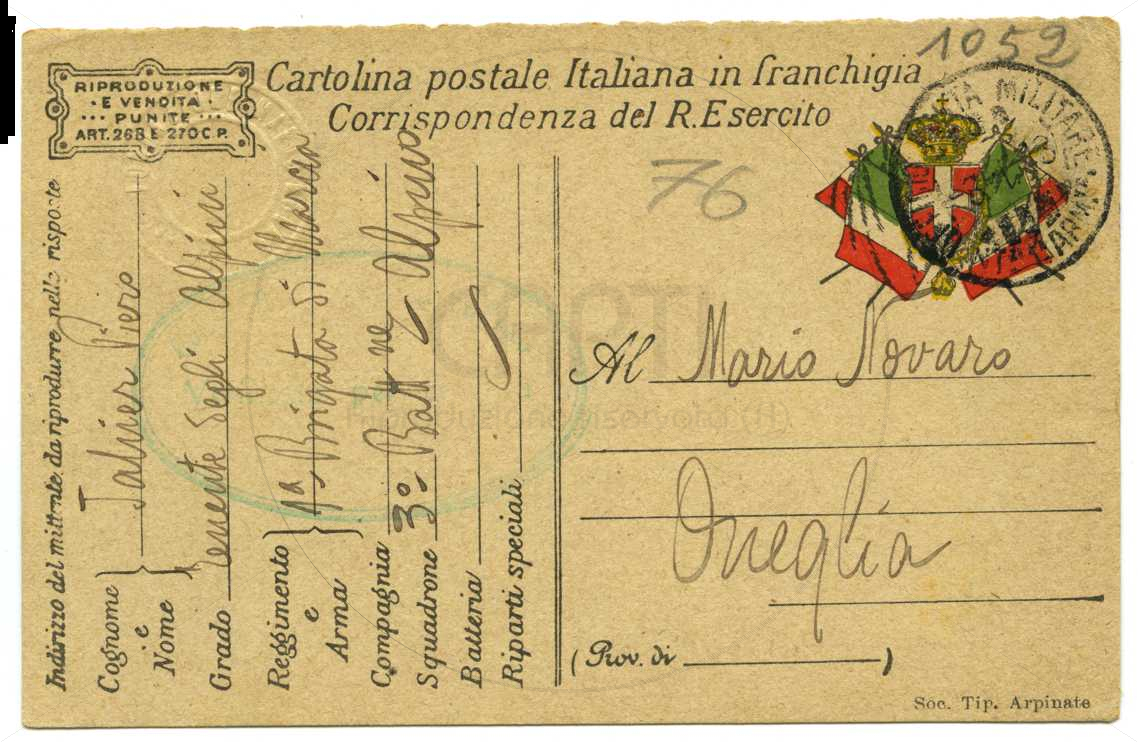 1059
RIPRODUZIONE
· E VENDITA ·
··· PUNITE ···
ART. 268 E 270 C.P.
Cartolina postale Italiana in franchigia
Corrispondenza del R. Esercito
76
POSTA MILITARE
Indirizzo del mittente da riprodurre nelle risposte
Cognome e Nome Jahier Piero
Grado Tenente degli Alpini
Reggimento e Arma 1a Brigata di Marcia
Compagnia
Squadrone 3° Batt ne Alpino
Batteria
Riparti speciali
Al Mario Novaro
Oneglia
(Prov. di )
Soc. Tip. Arpinate